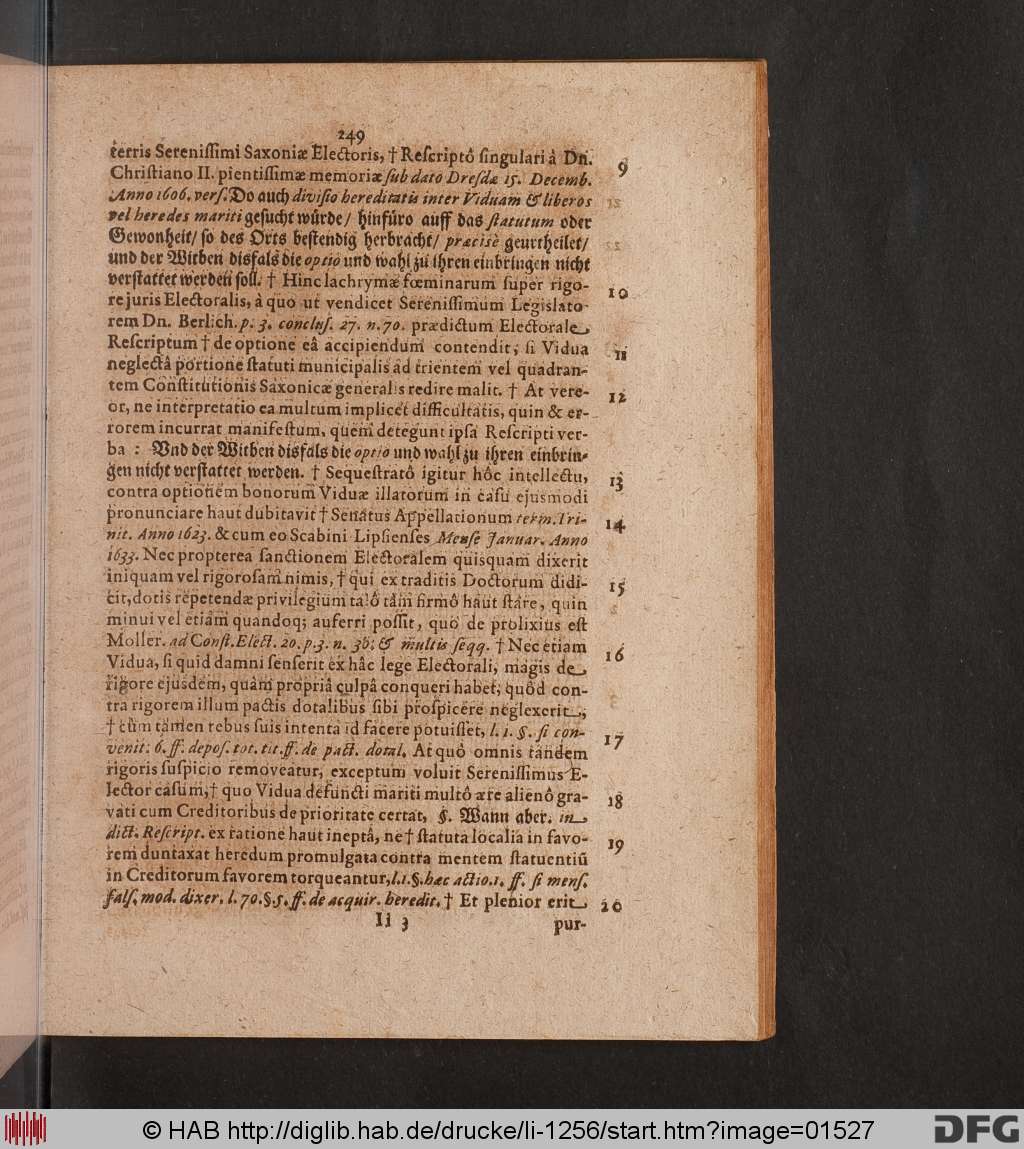 249
terris Sereniſſimi Saxoniæ Electoris, † Reſcriptô ſingulari à Dn. 9
Chriſtiano II. pientiſſimæ memoriæ ſub dato Dreſdæ 15. Decemb.
Anno 1606. verſ. Do auch diviſio hereditatis inter Viduam & liberos
vel heredes mariti geſucht würde/ hinfüro auff das ſtatutum oder
Gewonheit/ ſo des Orts beſtendig herbracht/ præcisè geurtheilet/
und der Witben disfals die optio und wahl zu ihren einbringen nicht
verſtattet werden ſoll. † Hinc lachrymæ fœminarum ſuper rigo- 10
re juris Electoralis, à quo ut vendicet Sereniſſimum Legislato-
rem Dn. Berlich. p. 3. concluſ. 27. n. 70. prædictum Electorale
Reſcriptum † de optione eâ accipiendum contendit, ſi Vidua 11
neglectâ portione ſtatuti municipalis ad trientem vel quadran-
tem Conſtitutionis Saxonicæ generalis redire malit. † At vere- 12
or, ne interpretatio ea multum implicet difficultatis, quin & er-
rorem incurrat manifeſtum, quem detegunt ipſa Reſcripti ver-
ba : Vnd der Witben disfals die optio und wahl zu ihren einbrin-
gen nicht verſtattet werden. † Sequeſtratô igitur hôc intellectu, 13
contra optionem bonorum Viduæ illatorum in caſu ejusmodi
pronunciare haut dubitavit † Senatus Appellationum term. Tri- 14
nit. Anno 1623. & cum eo Scabini Lipſienſes Menſe Januar. Anno
1633. Nec propterea ſanctionem Electoralem quisquam dixerit
iniquam vel rigoroſam nimis, † qui ex traditis Doctorum didi- 15
cit, dotis repetendæ privilegium talô tàm firmô haut ſtare, quin
minui vel etiam quandoq; auferri poſſit, quo de prolixius eſt
Moller. ad Conſt. Elect. 20. p. 3. n. 3b. & multis ſeqq. † Nec etiam 16
Vidua, ſi quid damni ſenſerit ex hâc lege Electorali, magis de
rigore ejusdem, quàm propriâ culpâ conqueri habet, quòd con-
tra rigorem illum pactis dotalibus ſibi proſpicere neglexerit,
† cùm tamen rebus ſuis intenta id facere potuiſſet, l. 1. §. ſi con- 17
venit. 6. ff. depoſ. tot. tit. ff. de pact. dotal. At quô omnis tandem
rigoris ſuſpicio removeatur, exceptum voluit Sereniſſimus E-
lector caſum, † quo Vidua defuncti mariti multô ære alienô gra- 18
vati cum Creditoribus de prioritate certat, §. Wann aber. in
dict. Reſcript. ex ratione haut ineptâ, ne † ſtatuta localia in favo- 19
rem duntaxat heredum promulgata contra mentem ſtatuentiũ
in Creditorum favorem torqueantur, l. 1. §. hæc actio. 1. ff. ſi menſ.
falſ. mod. dixer. l. 70. §. 5. ff. de acquir. heredit. † Et plenior erit 20
Ii 3 pur-
© HAB http://diglib.hab.de/drucke/li-1256/start.htm?image=01527
DFG